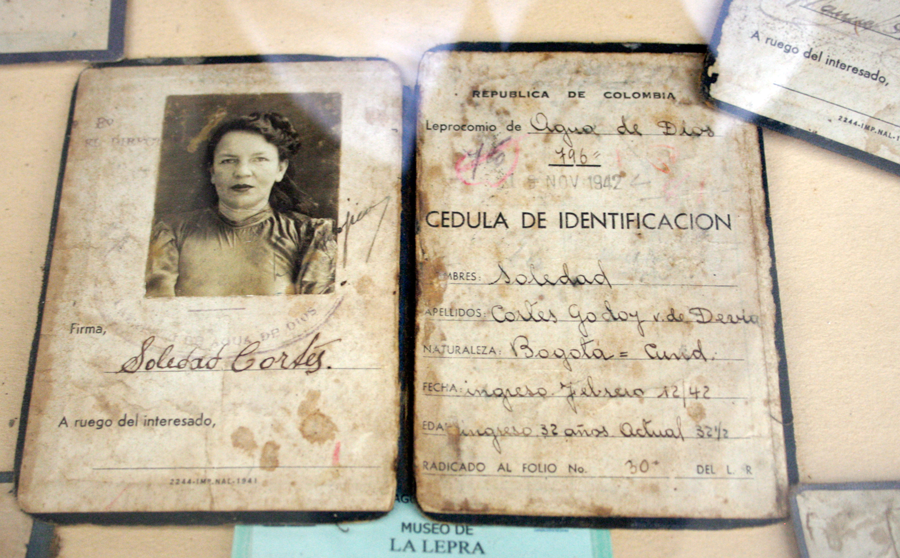 Firma,
DE AGUA DE DIOS
Soledad Cortés.
A ruego del interesado,
2244-IMP.NAL-1941
REPUBLICA DE COLOMBIA
Leprocomio de Agua de Dios
796=
NOV 1942
CEDULA DE IDENTIFICACION
MBRES: Soledad
APELLIDOS: Cortés Godoy v. de Devia
NATURALEZA: Bogotá = Cund.
FECHA: ingreso Febrero 12/42
EDAD ingreso 32 años Actual 32 1/2
RADICADO AL FOLIO No. 30 DEL L. R
A ruego del interesado,
2244-IMP.NAL-1
MUSEO DE
LA LEPRA